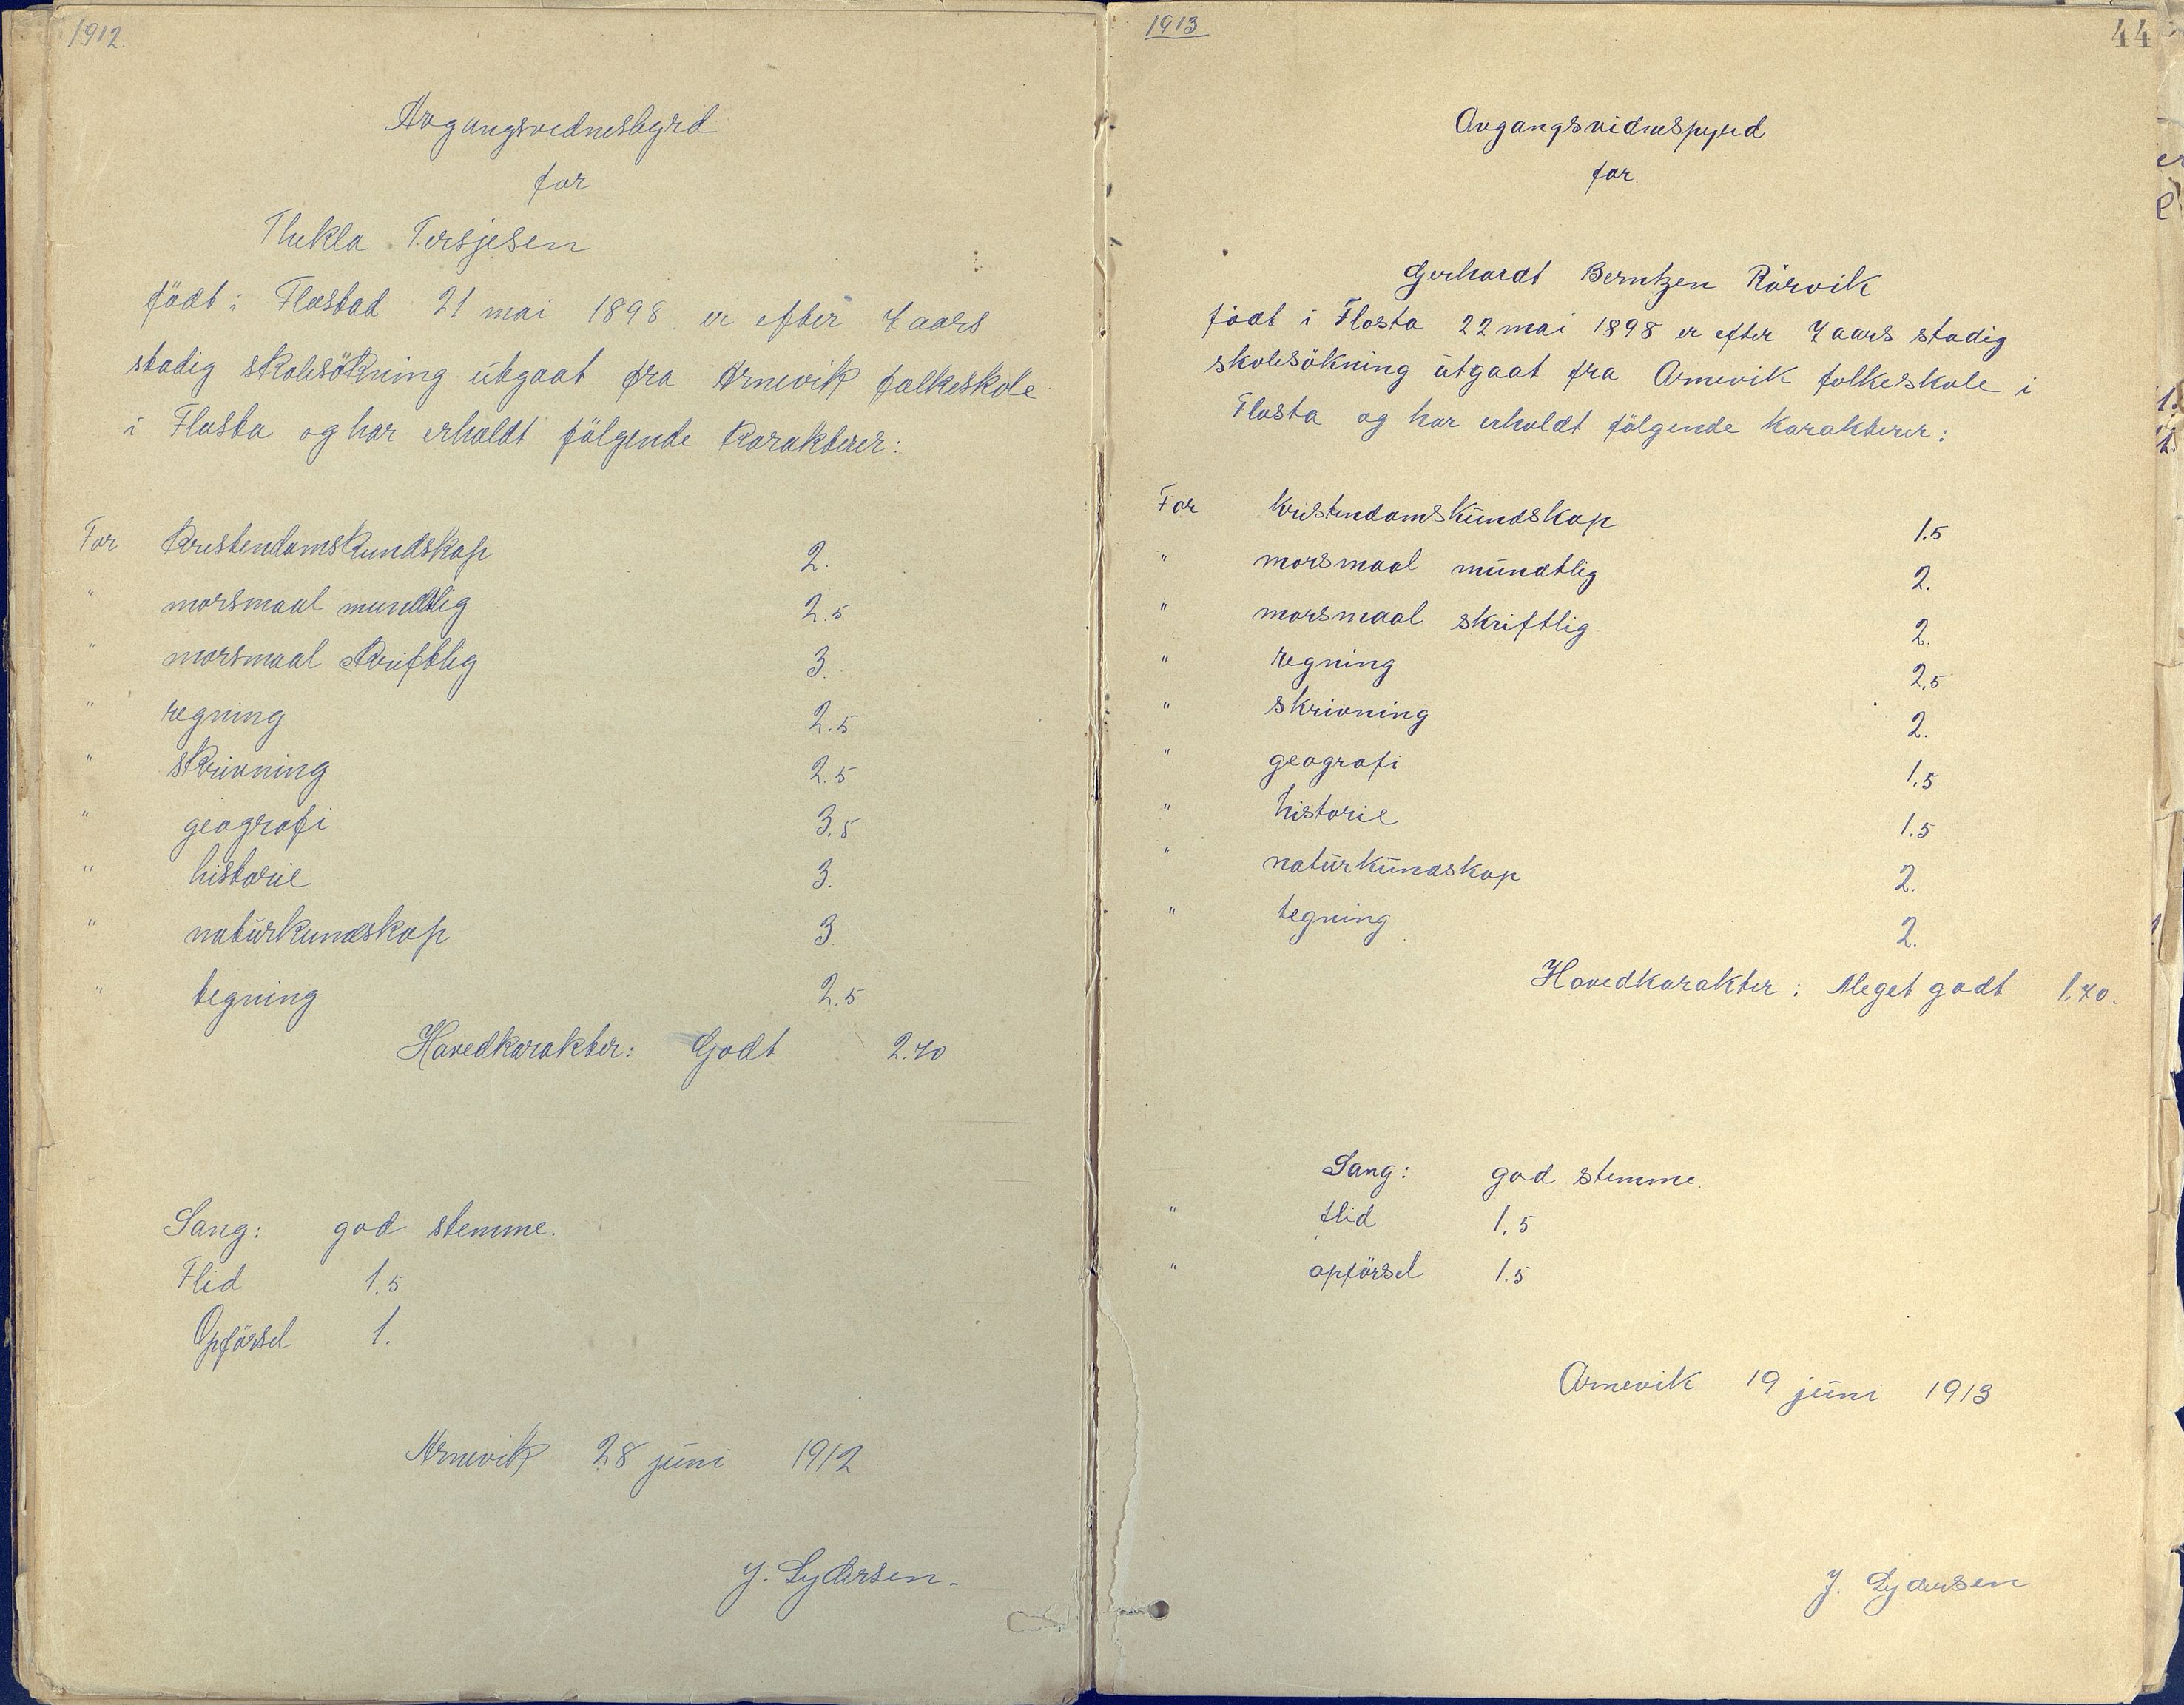 1912.
Avgangsvidnesbyrd
for
Thekla Tersjesen
födt i Flostad 21 mai 1898 er efter 7 aars
stadig skolesökning utgaat fra Arnevik folkeskole
i Flosta og har erholdt fölgende karakterer:
For kristendomskundskap 2.
" morsmaal mundtlig 2.5
" morsmaal skriftlig 3.
" regning 2.5
" skrivning 2.5
" geografi 3.5
" historie 3.
" naturkundskap 3
" tegning 2.5
Hovedkarakter: Godt 2.70
Sang: god stemme.
Flid 1.5
Opförsel 1.
Arnevik 28 juni 1912
J. Lydersen.
1913
44
Avgangsvidnespyrd
for
Gerhardt Berntzen Rörvik
födt i Flosta 22 mai 1898 er efter 7 aars stadig
skolesökning utgaat fra Arnevik folkeskole i
Flosta og har erholdt fölgende karakterer:
For kristendomskundskap 1.5
" morsmaal mundtlig 2.
" morsmaal skriftlig 2.
" regning 2,5
" skrivning 2.
" geografi 1.5
" historie 1.5
" naturkundskap 2.
" tegning 2.
Hovedkarakter: Meget godt 1.70.
Sang: god stemme.
" flid 1.5
" opförsel 1.5
Arnevik 19 juni 1913
J. Lydersen